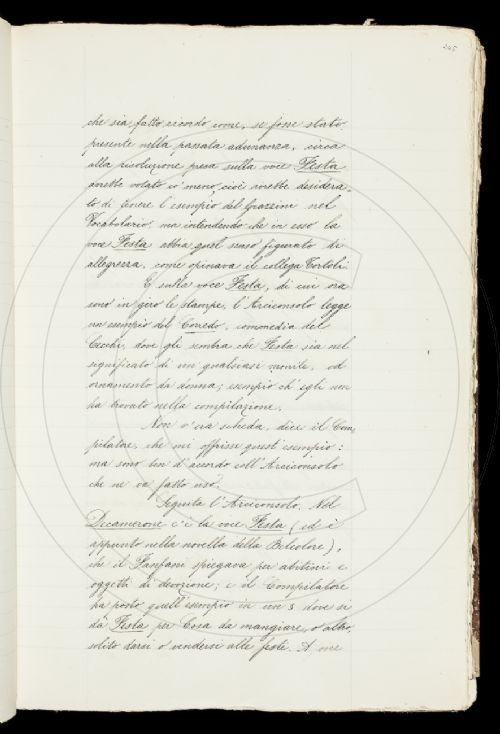 245
che sia fatto ricordo come, se fosse stato
presente nella passata adunanza, circa
alla risoluzione presa sulla voce Festa
avrebbe votato in meno, cioè avrebbe desidera-
to di tenere l'esempio del Grazzini nel
Vocabolario, ma intendendo che in esso la
voce Festa abbia quel senso figurato di
allegrezza, come opinava il collega Tortoli.
E sulla voce Festa, di cui ora
sono in giro le stampe, l'Arciconsolo legge
un esempio del Corredo, commedia del
Cecchi, dove gli sembra che Festa sia nel
significato di un qualsiasi monile, od
ornamento da donna; esempio ch'egli non
ha trovato nella compilazione.
Non v'era scheda, dice il Com-
pilatore, che mi offrisse quest'esempio:
ma sono ben d'accordo coll'Arciconsolo
che ne va fatto uso.
Seguita l'Arciconsolo. Nel
Decamerone c'è la voce Festa (ed è
appunto nella novella della Belcolore),
che il Fanfani spiegava per abitini e
oggetti di devozione; e il Compilatore
ha posto quell'esempio in un § dove si
dà Festa per Cosa da mangiare, o altro,
solito darsi o vendersi alle feste. A me